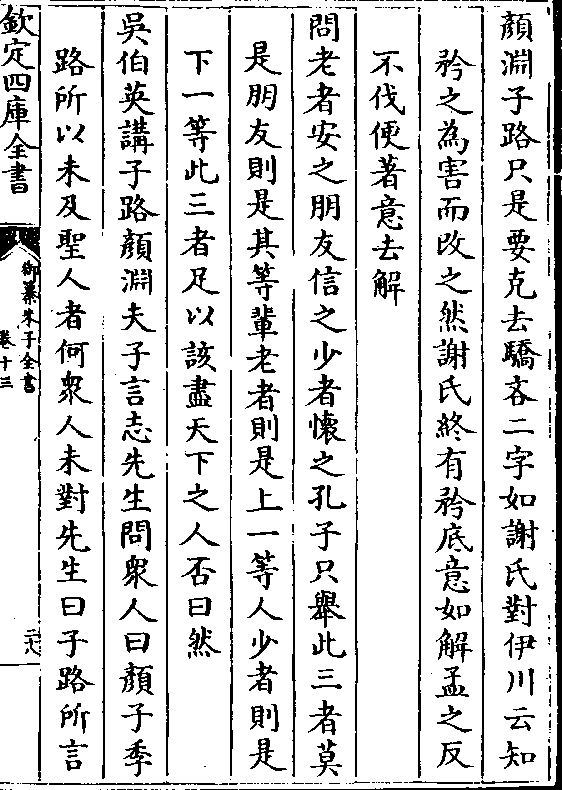 顔淵子路只是要克去驕吝二字如謝氏對伊川云知
矜之為害而改之然謝氏終有矜底意如解孟之反
不伐便著意去解
問老者安之朋友信之少者懷之孔子只舉此三者莫
是朋友則是其等輩老者則是上一等人少者則是
下一等此三者足以該盡天下之人否曰然
吳伯英講子路顔淵夫子言志先生問衆人曰顔子季
路所以未及聖人者何衆人未對先生曰子路所言
欽定四庫全書
御纂朱子全書
卷十三